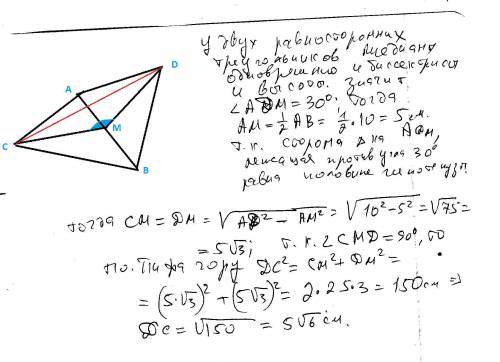 D
A
M
C
B
У двух равносторонних
треугольников медианы
одновременно и биссектрисы
и высоты. значит
∠ADM = 30°, тогда
AM = 1/2 AB = 1/2 · 10 = 5 см.
т. к. сторона Δ-ка ADM,
лежащая против угла 30°
равна половине гипотенузы
тогда CM = DM = √(AD² − AM²) = √(10² − 5²) = √75 =
= 5√3; т. к. ∠CMD = 90°, то
по Пифагору DC² = CM² + DM² =
= (5·√3)² + (5√3)² = 2·25·3 = 150 см ⇒
DC = √150 = 5√6 см.